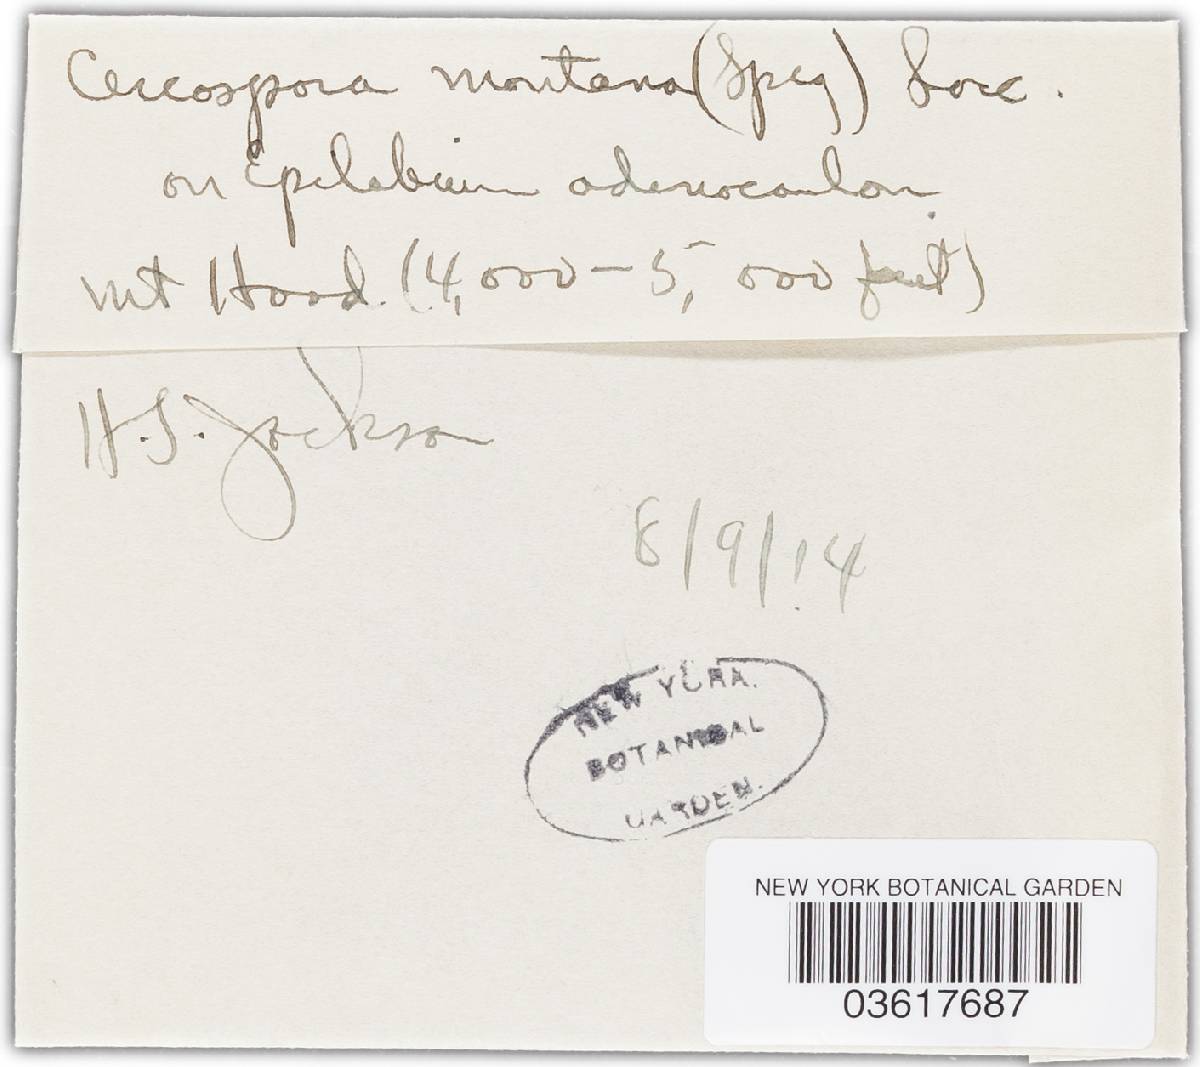 Cercospora montana (Speg) Sacc.
on Epilobium adenocaulon.
Mt Hood. (4,000 - 5,000 feet)
H.S. Jackson
8/9/14
NEW YORK
BOTANICAL
GARDEN.
NEW YORK BOTANICAL GARDEN
03617687